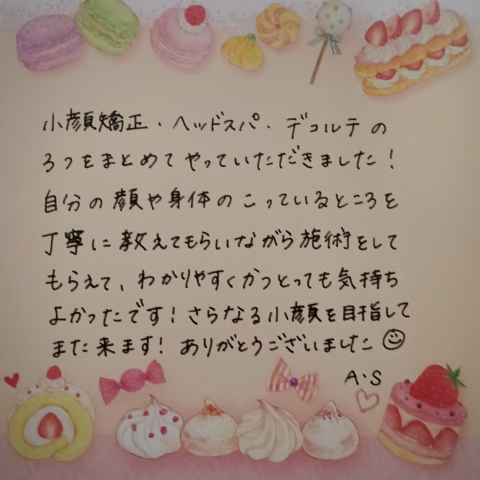 小顔矯正・ヘッドスパ・デコルテの
3つをまとめてやっていただきました！
自分の顔や身体のこっているところを
丁寧に教えてもらいながら施術をして
もらえて、わかりやすくかつとっても気持ち
よかったです！さらなる小顔を目指して
また来ます！ありがとうございました☺
A・S